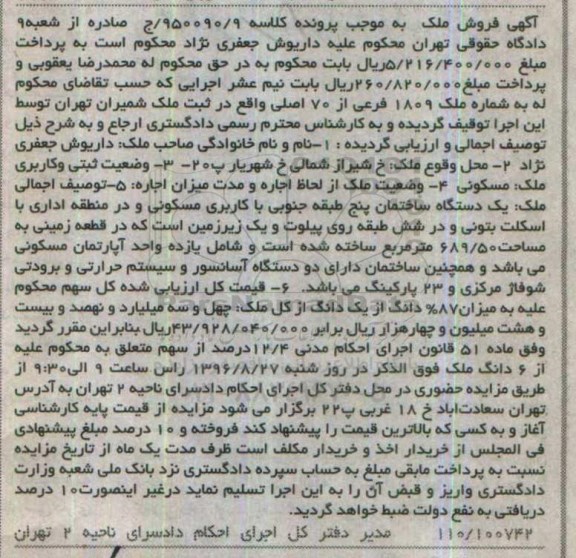 آگهی فروش ملک به موجب پرونده کلاسه ۹۵۰۰۹۰/۹/ج صادره از شعبه۹
دادگاه حقوقی تهران محکوم علیه داریوش جعفری نژاد محکوم است به پرداخت
مبلغ ۵/۲۱۶/۴۰۰/۰۰۰ریال بابت محکوم به در حق محکوم له محمدرضا یعقوبی و
پرداخت مبلغ۲۶۰/۸۲۰/۰۰۰ریال بابت نیم عشر اجرایی که حسب تقاضای محکوم
له به شماره ملک ۱۸۰۹ فرعی از ۷۰ اصلی واقع در ثبت ملک شمیران تهران توسط
این اجرا توقیف گردیده و به کارشناس محترم رسمی دادگستری ارجاع و به شرح ذیل
توصیف اجمالی و ارزیابی گردیده : ۱-نام و نام خانوادگی صاحب ملک: داریوش جعفری
نژاد ۲- محل وقوع ملک: خ شیراز شمالی خ شهریار پ۲۰- ۳- وضعیت ثبتی وکاربری
ملک: مسکونی ۴- وضعیت ملک از لحاظ اجاره و مدت میزان اجاره: ۵-توصیف اجمالی
ملک: یک دستگاه ساختمان پنج طبقه جنوبی با کاربری مسکونی و در منطقه اداری با
اسکلت بتونی و در شش طبقه روی پیلوت و یک زیرزمین است که در قطعه زمینی به
مساحت۶۸۹/۵۰ مترمربع ساخته شده است و شامل یازده واحد آپارتمان مسکونی
می باشد و همچنین ساختمان دارای دو دستگاه آسانسور و سیستم حرارتی و برودتی
شوفاژ مرکزی و ۲۳ پارکینگ می باشد. ۶- قیمت کل ارزیابی شده کل سهم محکوم
علیه به میزان۸۷% دانگ از یک دانگ از کل ملک: چهل و سه میلیارد و نهصد و بیست
و هشت میلیون و چهارهزار ریال برابر ۴۳/۹۲۸/۰۴۰/۰۰۰ریال بنابراین مقرر گردید
وفق ماده ۵۱ قانون اجرای احکام مدنی ۱۲/۴درصد از سهم متعلق به محکوم علیه
از ۶ دانگ ملک فوق الذکر در روز شنبه ۱۳۹۶/۸/۲۷ راس ساعت ۹ الی۹:۳۰ از
طریق مزایده حضوری در محل دفتر کل اجرای احکام دادسرای ناحیه ۲ تهران به آدرس
تهران سعادت‌اباد خ ۱۸ غربی پ۲۲ برگزار می شود مزایده از قیمت پایه کارشناسی
آغاز و به کسی که بالاترین قیمت را پیشنهاد کند فروخته و ۱۰ درصد مبلغ پیشنهادی
فی المجلس از خریدار اخذ و خریدار مکلف است ظرف مدت یک ماه از تاریخ مزایده
نسبت به پرداخت مابقی مبلغ به حساب سپرده دادگستری نزد بانک ملی شعبه وزارت
دادگستری واریز و قبض آن را به این اجرا تسلیم نماید درغیر اینصورت۱۰ درصد
دریافتی به نفع دولت ضبط خواهد گردید.
۱۱۰/۱۰۰۷۴۲ مدیر دفتر کل اجرای احکام دادسرای ناحیه ۲ تهران